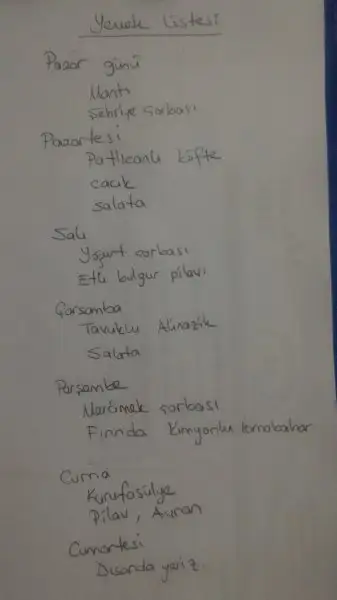 Yemek Listesi
Pazar günü
Mantı
Şehriye çorbası
Pazartesi
Patlıcanlı köfte
cacık
salata
Salı
Yoğurt çorbası
Etli bulgur pilavı
Çarşamba
Tavuklu Alinazik
Salata
Perşembe
Mercimek çorbası
Fırında Kimyonlu karnabahar
Cuma
Kurufasülye
Pilav, Ayran
Cumartesi
Dışarda yeriz.